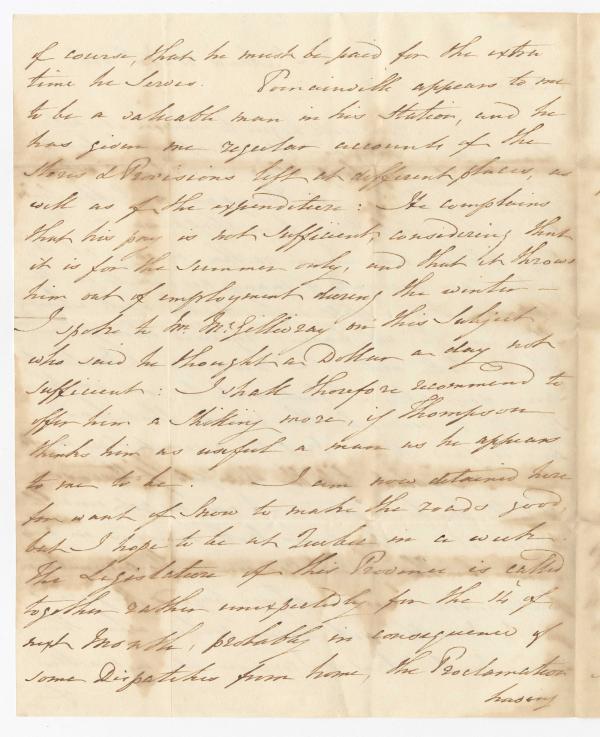 of course, that he must be paid for the extra
time he serves. Pomainville appears to me
to be a valuable man in his station, and he
has given me regular accounts of the
Stores & Provisions left at different places, as
well as of the expenditure: He complains
that his pay is not sufficient, considering that
it is for the summer only, and that it throws
him out of employment during the winter –
I spoke to Mr. McGillivray on this Subject
who said he thought a Dollar a day not
sufficient: I shall therefore recommend to
offer him a Shilling more, if Thompson
thinks him as useful a man as he appears
to me to be. I am now detained here
for want of Snow to make the roads good,
but I hope to be at Quebec in a week.
The Legislature of this Province is called
together rather unexpectedly for the 14th of
next Month, probably in consequence of
some Dispatches from home, the Proclamation
having